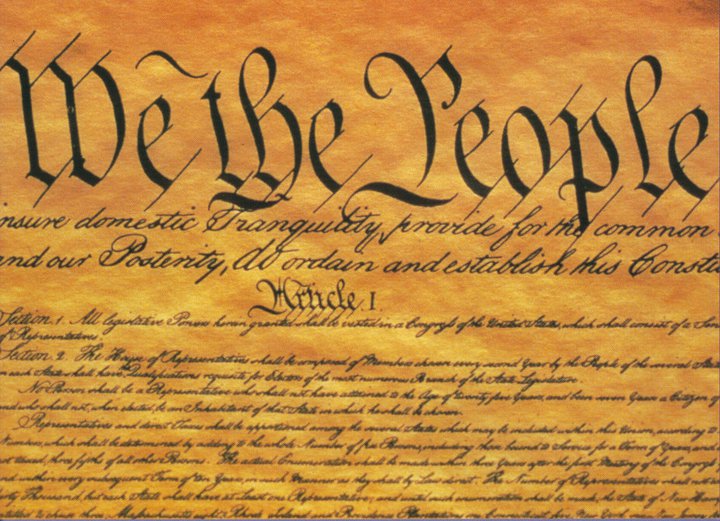 We the People
insure domestic Tranquility, provide for the common
and our Posterity, do ordain and establish this Consti
Article. I.
Section. 1. All legislative Powers herein granted shall be vested in a Congress of the United States, which shall consist of a Sen
of Representatives.
Section. 2. The House of Representatives shall be composed of Members chosen every second Year by the People of the several States
in each State shall have the Qualifications requisite for Electors of the most numerous Branch of the State Legislature.
No Person shall be a Representative who shall not have attained to the Age of twenty five Years, and been seven Years a Citizen of
and who shall not, when elected, be an Inhabitant of that State in which he shall be chosen.
Representatives and direct Taxes shall be apportioned among the several States which may be included within this Union, according to
Numbers, which shall be determined by adding to the whole Number of free Persons, including those bound to Service for a Term of Years, and
not taxed, three fifths of all other Persons. The actual Enumeration shall be made within three Years after the first Meeting of the Congress
and within every subsequent Term of ten Years, in such Manner as they shall by Law direct. The Number of Representatives shall not
thirty Thousand, but each State shall have at Least one Representative; and until such enumeration shall be made, the State of New Ham
entitled to chuse three, Massachusetts eight, Rhode Island and Providence Plantations one, Connecticut five, New York six, New Jersey